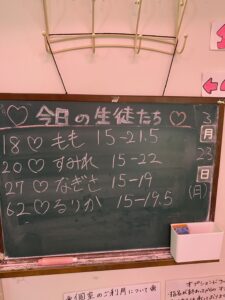 ♡ 今日の生徒たち ♡
18 ♡ もも 15-21.5
20 ♡ すみれ 15-22
27 ♡ なぎさ 15-19
62 ♡ るりか 15-19.5
3
月
23
日
(月)
個室のご利用について
オプションコ